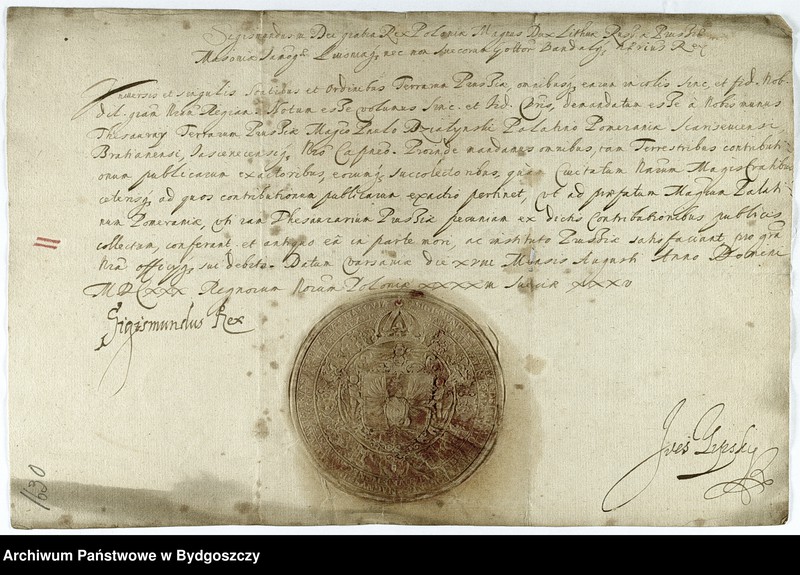 Sigismundus Dei gratia Rex Poloniæ Magnus Dux Lithuæ Russiæ Prussiæ
Masoviæ Samog. Livoniæq, nec non Suecorum Gottor. Vandalorq hæred. Rex
Universis et singulis Statibus et Ordinibus Terrarum Prussiæ, omnibusq earum incolis sinc. et fid. Nob.
dil. gram Nram Regiam. Notum esse volumus Sinc. et Fid. Vris, demandatum esse à Nobis munus
Thesaurarij Terrarum Prussiæ Magco Paulo Działynski Palatino Pomeraniæ
Bratianensi, Jasinecensiq, Nro Capneo. Proinde mandamus omnibus, tam Terrestribus contributi-
onum publicarum exactoribus, eorumq succollectoribus, quam Civitatum Nrarum Magistratibus
ceterisq, ad quos contributionum publicarum exactio pertinet, ut ad præfatum Magcum Palati-
num Pomeraniæ, uti iam Thesaurarium Prussiæ pecuniam ex dictis Contributionibus publicis
collectam, conferant, et in ea in parte mori, ac instituto Prussiæ satisfaciant, pro gra
Nra officijq sui debito. Datum Varsaviæ die XVIII Mensis Augusti Anno Domini
MDCXXX Regnorum Nrorum Poloniæ XXXXIII Sueciæ XXXV
Sigismundus Rex
1630
Archiwum Państwowe w Bydgoszczy